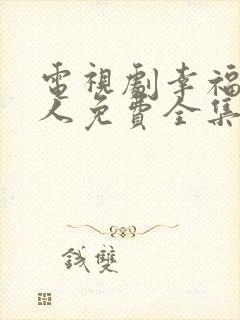 電視劇幸福
人免費全集
錢雙